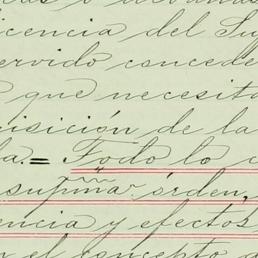 icencia del Su
ervido concede
que necesita
isición de la
la.= Todo lo c
suprma órden,
encia y efectos
n el concepto d